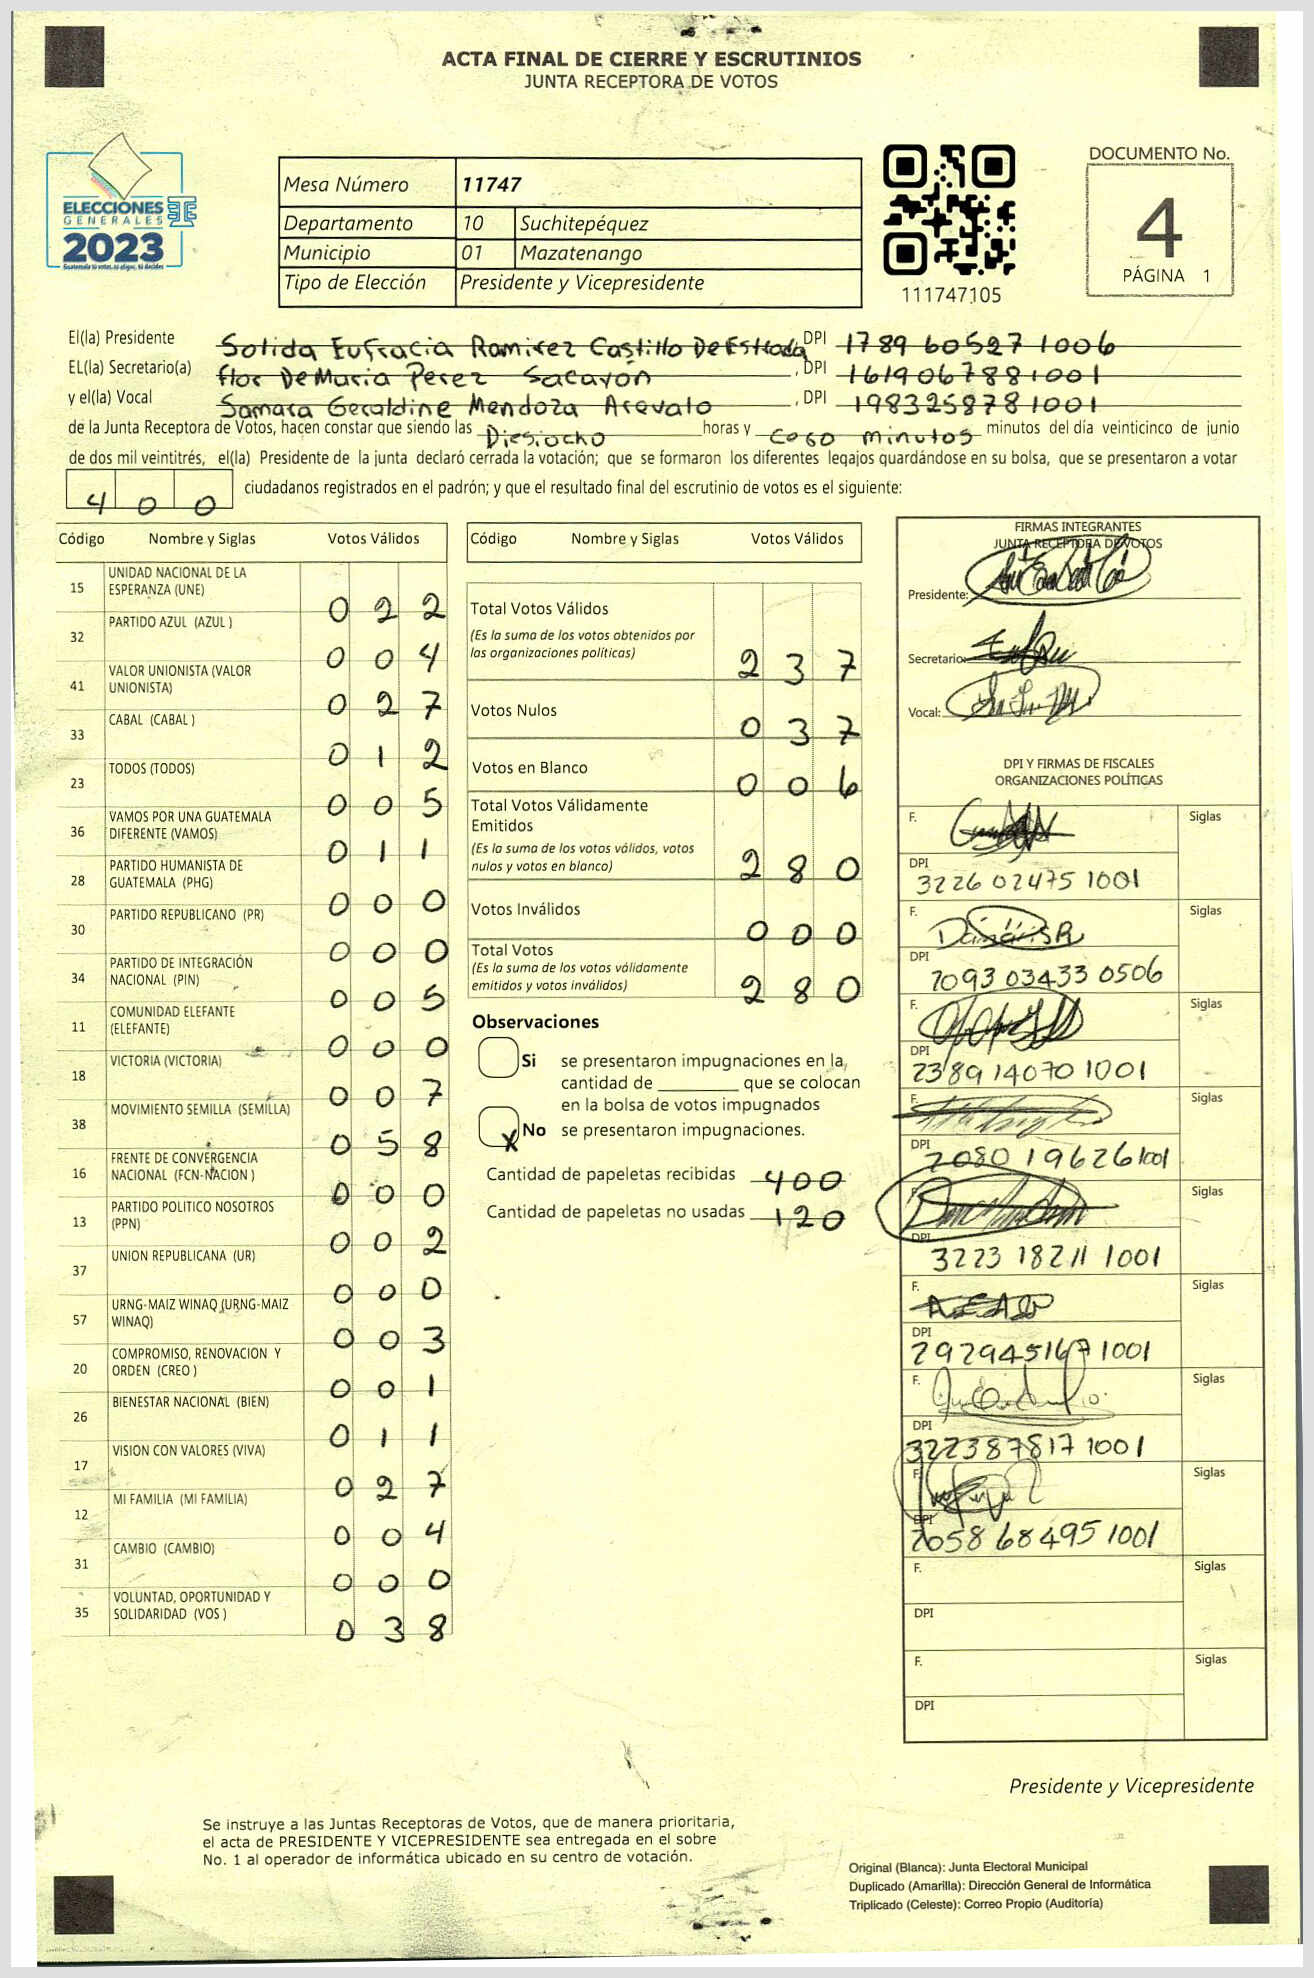 ACTA FINAL DE CIERRE Y ESCRUTINIOS
JUNTA RECEPTORA DE VOTOS
ELECCIONES
GENERALES
2023
Guatemala tú votas, tú eliges, tú decides
Mesa Número 11747
Departamento 10 Suchitepéquez
Municipio 01 Mazatenango
Tipo de Elección Presidente y Vicepresidente
111747105
DOCUMENTO No.
4
PÁGINA 1
El(la) Presidente Solida Eufracia Ramirez Castillo De Estrada, DPI 1789 60527 1006
EL(la) Secretario(a) flor DeMaria Perez Sacayon, DPI 1619067881001
y el(la) Vocal Samara Geraldine Mendoza Arevalo, DPI 1983258781001
de la Junta Receptora de Votos, hacen constar que siendo las Diesiocho horas y cero minutos minutos del día veinticinco de junio
de dos mil veintitrés, el(la) Presidente de la junta declaró cerrada la votación; que se formaron los diferentes legajos guardándose en su bolsa, que se presentaron a votar
400 ciudadanos registrados en el padrón; y que el resultado final del escrutinio de votos es el siguiente:
Código Nombre y Siglas Votos Válidos
15 UNIDAD NACIONAL DE LA ESPERANZA (UNE) 022
32 PARTIDO AZUL (AZUL ) 004
41 VALOR UNIONISTA (VALOR UNIONISTA) 027
33 CABAL (CABAL ) 012
23 TODOS (TODOS) 005
36 VAMOS POR UNA GUATEMALA DIFERENTE (VAMOS) 011
28 PARTIDO HUMANISTA DE GUATEMALA (PHG) 000
30 PARTIDO REPUBLICANO (PR) 000
34 PARTIDO DE INTEGRACIÓN NACIONAL (PIN) 005
11 COMUNIDAD ELEFANTE (ELEFANTE) 000
18 VICTORIA (VICTORIA) 007
38 MOVIMIENTO SEMILLA (SEMILLA) 058
16 FRENTE DE CONVERGENCIA NACIONAL (FCN-NACION ) 000
13 PARTIDO POLITICO NOSOTROS (PPN) 002
37 UNION REPUBLICANA (UR) 000
57 URNG-MAIZ WINAQ (URNG-MAIZ WINAQ) 003
20 COMPROMISO, RENOVACION Y ORDEN (CREO ) 001
26 BIENESTAR NACIONAL (BIEN) 011
17 VISION CON VALORES (VIVA) 027
12 MI FAMILIA (MI FAMILIA) 004
31 CAMBIO (CAMBIO) 000
35 VOLUNTAD, OPORTUNIDAD Y SOLIDARIDAD (VOS ) 038
Código Nombre y Siglas Votos Válidos
Total Votos Válidos
(Es la suma de los votos obtenidos por
las organizaciones políticas) 237
Votos Nulos 037
Votos en Blanco 006
Total Votos Válidamente
Emitidos
(Es la suma de los votos válidos, votos
nulos y votos en blanco) 280
Votos Inválidos 000
Total Votos
(Es la suma de los votos válidamente
emitidos y votos inválidos) 280
Observaciones
Si se presentaron impugnaciones en la,
cantidad de ________ que se colocan
en la bolsa de votos impugnados
X No se presentaron impugnaciones.
Cantidad de papeletas recibidas 400
Cantidad de papeletas no usadas 120
FIRMAS INTEGRANTES
JUNTA RECEPTORA DE VOTOS
Presidente:
Secretario:
Vocal:
DPI Y FIRMAS DE FISCALES
ORGANIZACIONES POLÍTICAS
F. Siglas
DPI
3226 02475 1001
F. Siglas
DPI
2093 03433 0506
F. Siglas
DPI
2389 14070 1001
F. Siglas
DPI
2080 19626 1001
F. Siglas
DPI
3223 18211 1001
F. Siglas
DPI
2929451671001
F. Siglas
DPI
322387817 1001
F. Siglas
DPI
2058 68495 1001
F. Siglas
DPI
F. Siglas
DPI
Presidente y Vicepresidente
Se instruye a las Juntas Receptoras de Votos, que de manera prioritaria,
el acta de PRESIDENTE Y VICEPRESIDENTE sea entregada en el sobre
No. 1 al operador de informática ubicado en su centro de votación.
Original (Blanca): Junta Electoral Municipal
Duplicado (Amarilla): Dirección General de Informática
Triplicado (Celeste): Correo Propio (Auditoría)